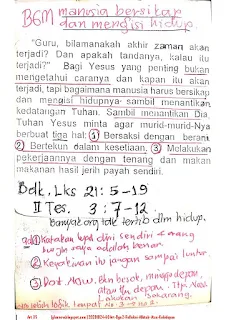 BGM manusia bersikap
dan mengisi hidup.
"Guru, bilamanakah akhir zaman akan
terjadi? Dan apakah tandanya, kalau itu
terjadi?" Bagi Yesus yang penting bukan
mengetahui caranya dan kapan itu akan
terjadi, tapi bagaimana manusia harus bersikap
dan mengisi hidupnya sambil menantikan
kedatangan Tuhan. Sambil menantikan Dia,
Tuhan Yesus minta agar murid-murid-Nya
berbuat tiga hal: 1 Bersaksi dengan berani.
2 Bertekun dalam kesetiaan. 3 Melakukan
pekerjaannya dengan tenang dan makan
makanan hasil jerih payah sendiri.
Bdk. Lks 21: 5-19
II Tes. 3: 7-12.
Banyak org tak tertib dlm hidup.
1 Katakan kpd diri sendiri & orang
adalah benar.
2 Keyakinan itu jangan sampai luntur.
3 Dot. Now. Bkn besok, minggu depan,
atau thn depan. Ttp. Now
Lakukan sekarang.